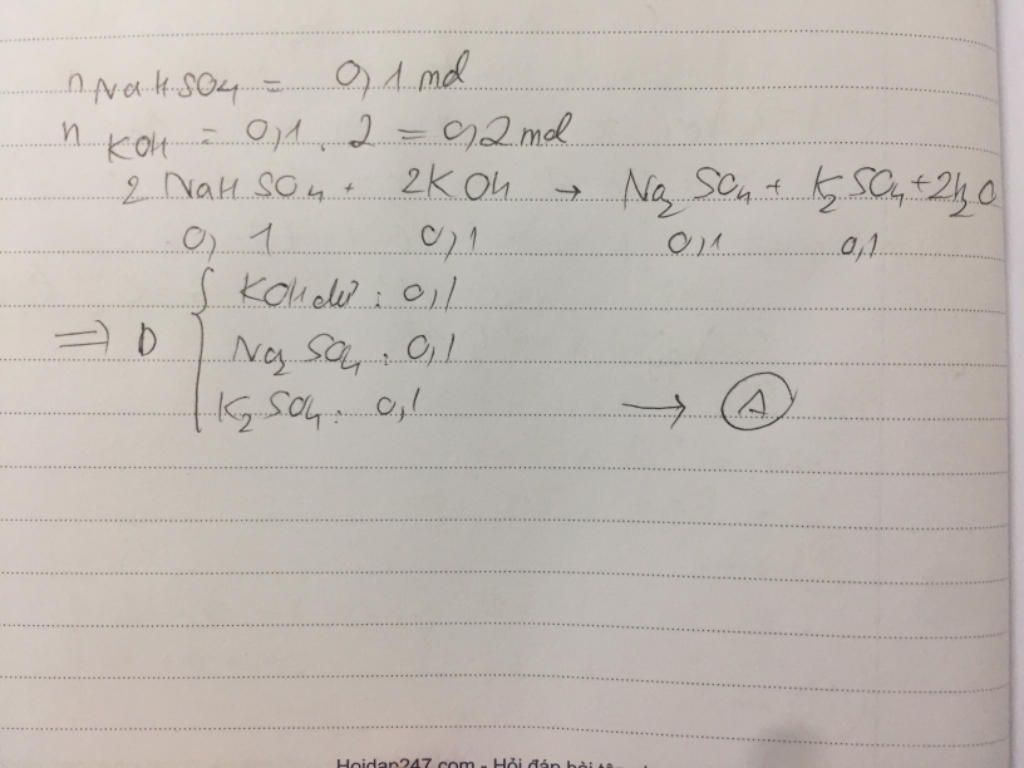 n NaHSO4 = 0,1 mol
n KOH = 0,1 . 2 = 0,2 mol
2 NaHSO4 + 2KOH → Na2SO4 + K2SO4 + 2H2O
0,1 0,1 0,1 0,1
KOH dư : 0,1
=> D Na2SO4 : 0,1
K2SO4 : 0,1 → A
Hoidap247.com - Hỏi đáp bài